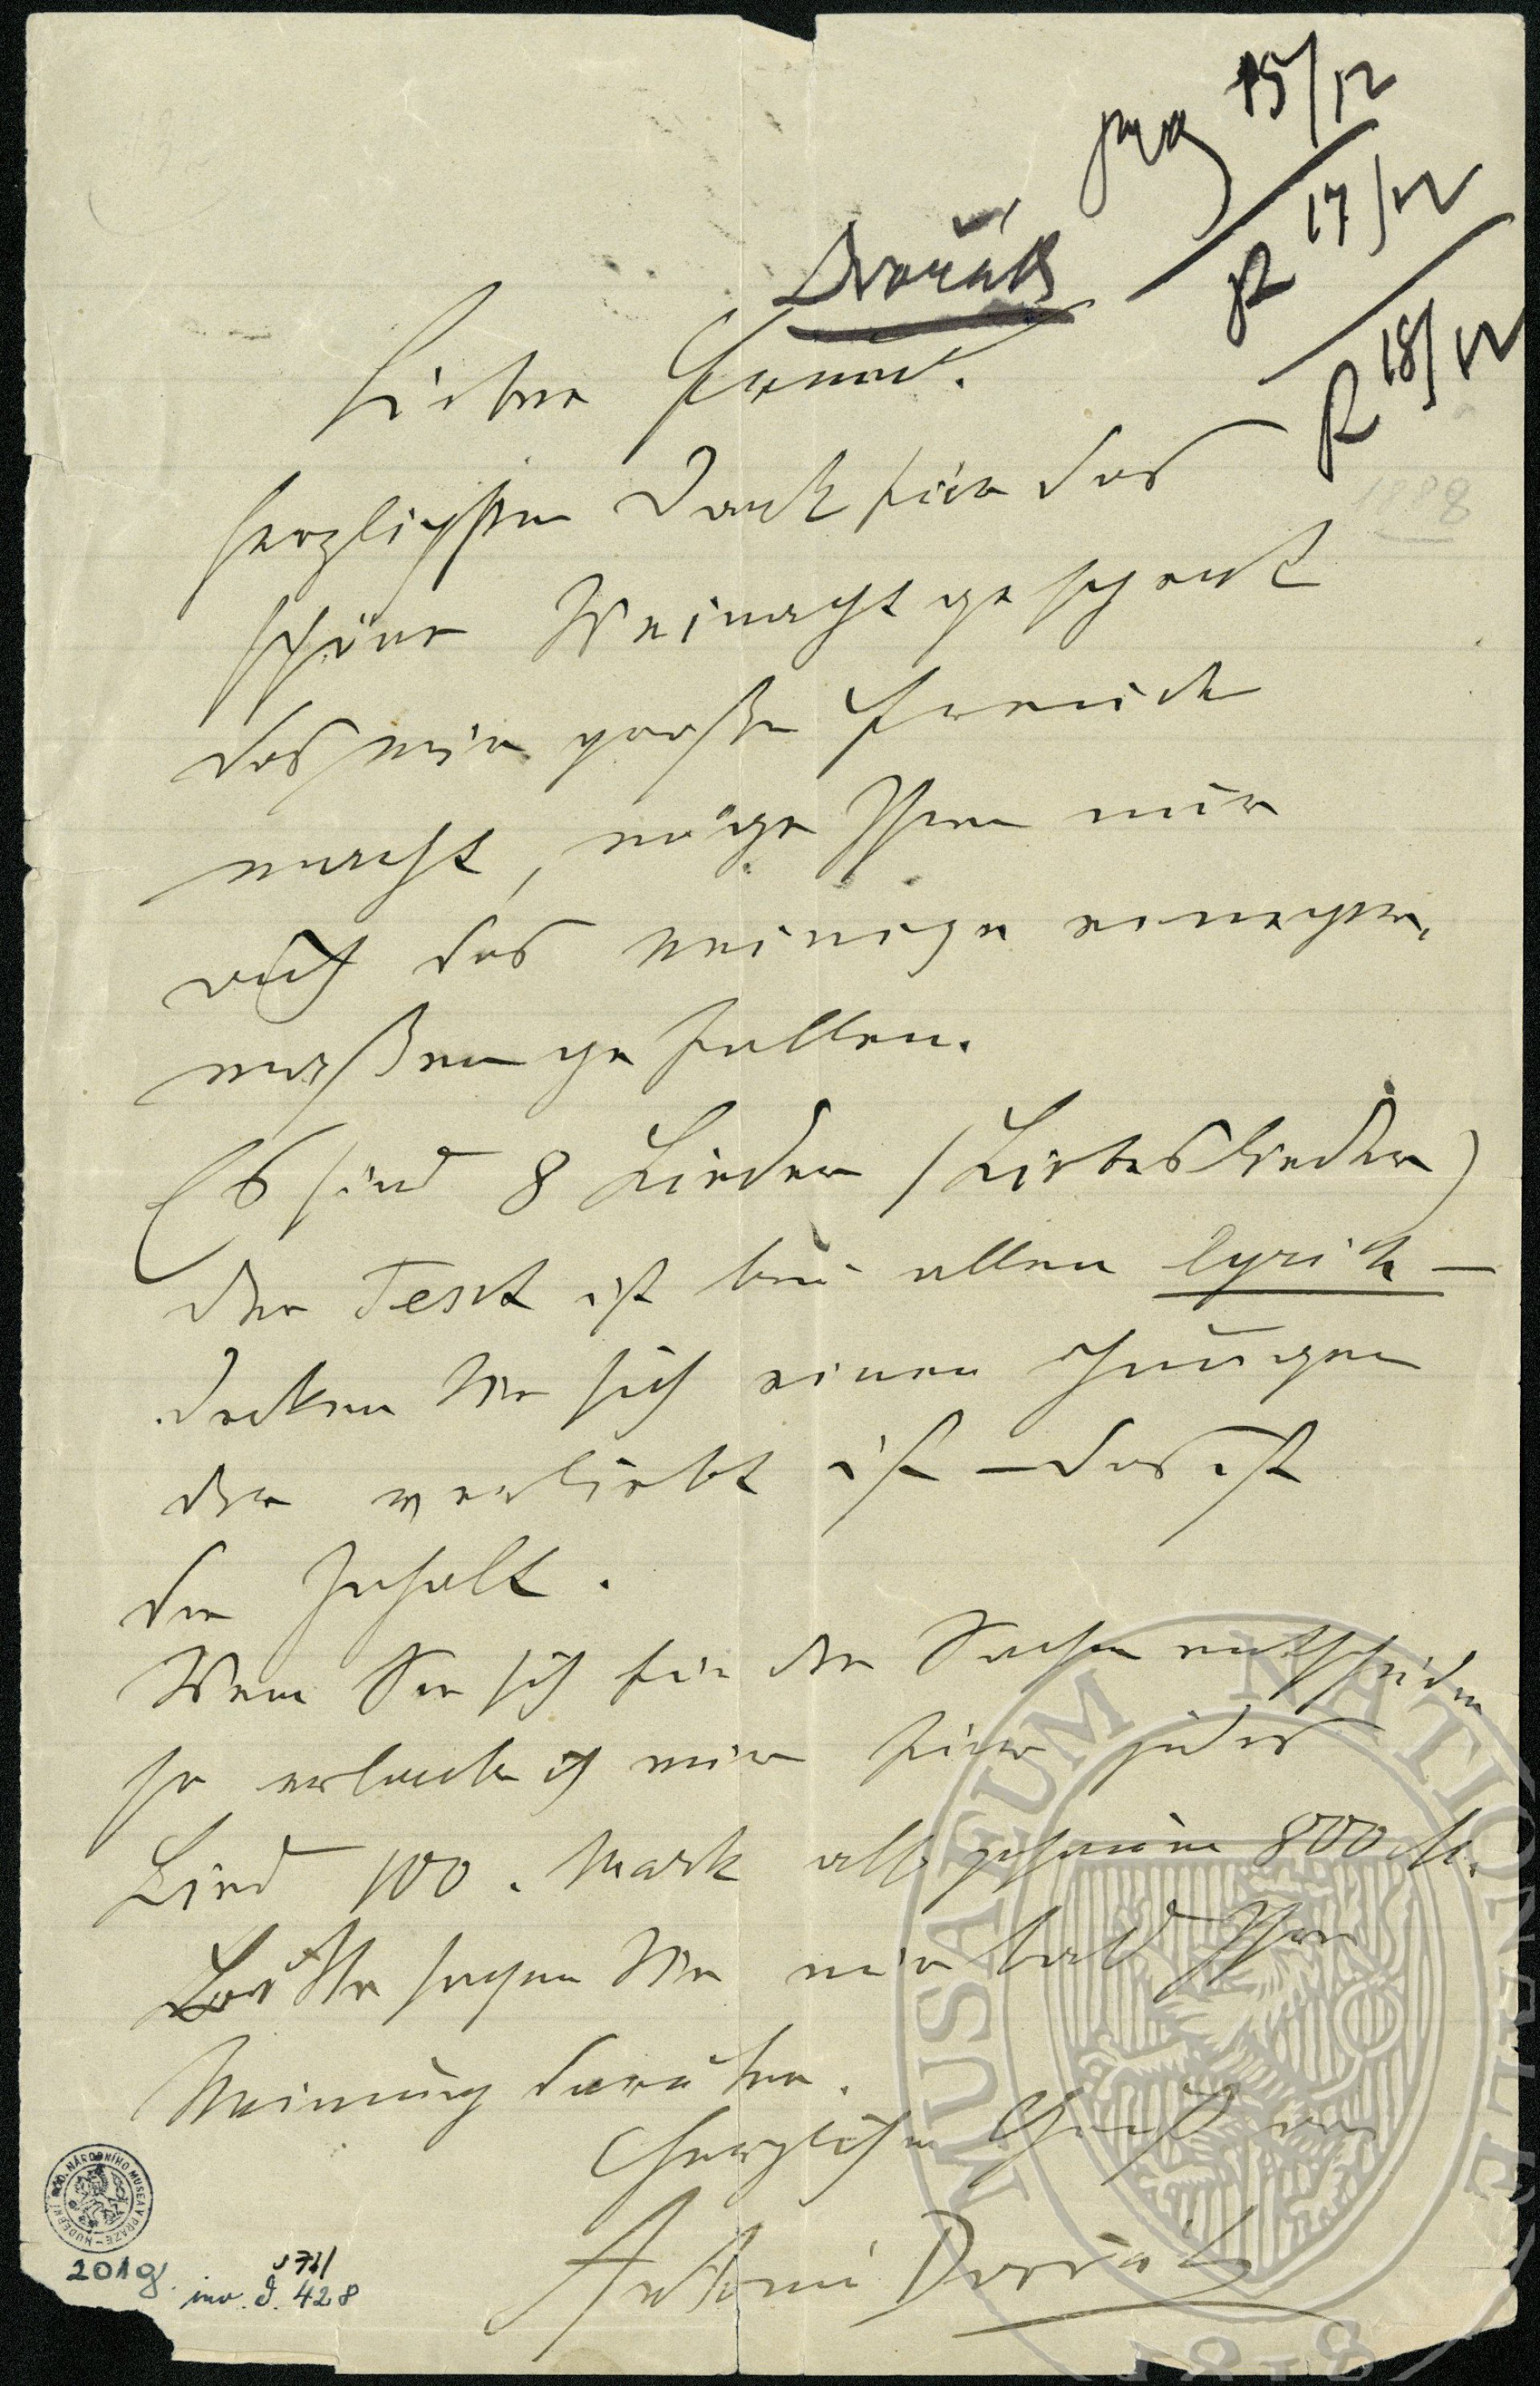 Prag 15/12
R 17/12
R 18/12
Dvořák
1888
Lieber Freund.
herzlichsten Dank für das
schöne Weinachtgeschenk
das mir große Freude
macht, möge Ihnen nur
auch das meinige einiger-
maßen gefallen.
Es sind 8 Lieder (Liebeslieder)
der Text ist bei allen lyrik –
denken Sie sich einen Jungen
der verliebt ist – das ist
der Inhalt.
Wenn Sie sich für die Sachen entscheiden
so erlaube ich mir für jedes
Lied 100. Mark also 800 M.
Bitte sagen Sie mir bald Ihre
Meinung darüber.
Herzlichen Gruß von
Antonín Dvořák
HUDEBNÍ ODD. NÁRODNÍHO MUSEA V PRAZE
201g
inv. č. 428
MUSAEUM NATIONALE
1818